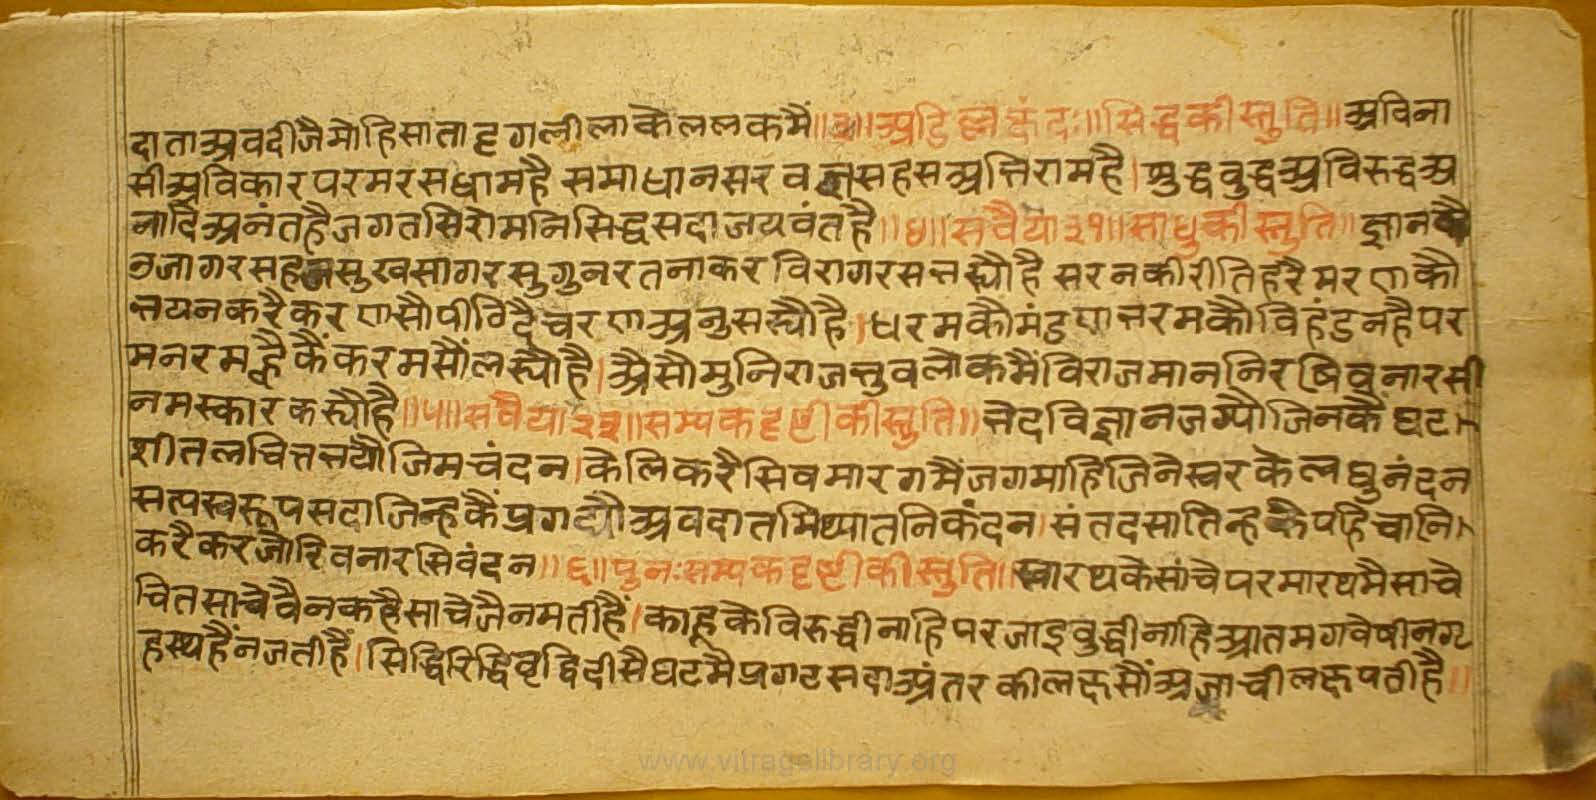 दाता अब दीजै मोहि साता दृग लीला कै ललक मैं ॥३॥ अडिल्ल छंदः ॥ सिद्ध की स्तुति ॥ अविना
सी अविकार परम रस धाम है समाधान सरवज्ञ सहस अभिराम है । शुद्ध बुद्ध अविरुद्ध अ
नादि अनंत है जगत सिरोमनि सिद्ध सदा जयवंत है ॥४॥ सवैया ३१ ॥ साधु की स्तुति ॥ ज्ञान कौ
उजागर सहज सुखसागर सुगुन रतनाकर विराग रस भस्यौ है सरन की रीति हरै मरण कौ
भय न करै करण सौ पीठि दै चरण अनुसस्यौ है । धरम कौ मंडण भरम कौ विहंडन है पर
म नरम ह्वै कैं करम सौं लस्यौ है । अैसौ मुनिराज भुवलोक मैं विराजमान निरषि बनारसी
नमस्कार कस्यौ है ॥५॥ सवैया २३ ॥ सम्यक दृष्टी की स्तुति ॥ भेद विज्ञान जग्यौ जिन कैं घट
शीतल चित्त भयौ जिम चंदन । केलि करै सिव मारग मैं जग माहि जिनेस्वर के लघु नंदन
सत्य स्वरूप सदा जिन्ह कैं प्रगट्यौ अवदात मिथ्यात निकंदन । संत दसा तिन्ह की पहिचानि
करै कर जोरि बनारसि वंदन ॥६॥ पुनः सम्यक दृष्टी की स्तुति ॥ स्वारथ के सांचे परमारथ मै साचे
चित साचे बैन कहै साचे जैनमती हैं । काहू के विरुद्धी नाहि परजाइ बुद्धी नाहि आतम गवेषी न गृ
हस्थ हैं न जती हैं । सिद्धि रिद्धि वृद्धि दीसै घट मै प्रगट सदा अंतर की लछ सौं अजाची लछपती है ॥
www.vitragalibrary.org